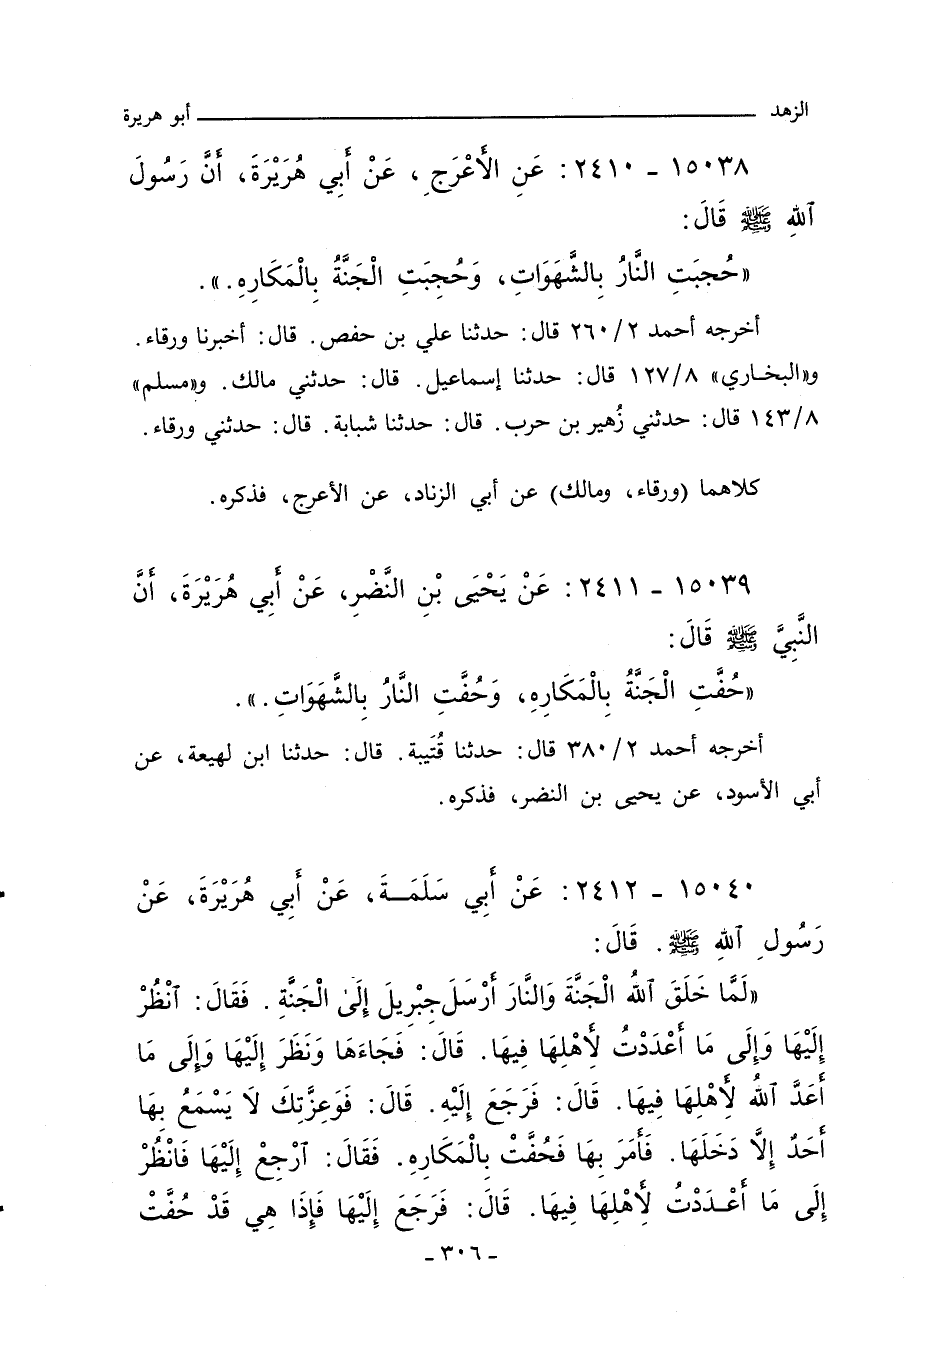 الزهد ــــــــــــــــــــــــــــــــــــــــ أبو هريرة
١٥٠٣٨ ـ ٢٤١٠: عَنِ الأَعْرَجِ، عَنْ أَبِي هُرَيْرَةَ، أَنَّ رَسُولَ
ٱللهِ ﷺ قَالَ:
«حُجِبَتِ النَّارُ بِالشَّهَوَاتِ، وَحُجِبَتِ الْجَنَّةُ بِالْمَكَارِهِ.».
أخرجه أحمد ٢/٢٦٠ قال: حدثنا علي بن حفص. قال: أخبرنا ورقاء.
و«البخاري» ٨/١٢٧ قال: حدثنا إسماعيل. قال: حدثني مالك. و«مسلم»
٨/١٤٣ قال: حدثني زُهير بن حرب. قال: حدثنا شبابة. قال: حدثني ورقاء.
كلاهما (ورقاء، ومالك) عن أبي الزناد، عن الأعرج، فذكره.
١٥٠٣٩ ـ ٢٤١١: عَنْ يَحْيَى بْنِ النَّضْرِ، عَنْ أَبِي هُرَيْرَةَ، أَنَّ
النَّبِيَّ ﷺ قَالَ:
«حُفَّتِ الْجَنَّةُ بِالْمَكَارِهِ، وَحُفَّتِ النَّارُ بِالشَّهَوَاتِ.».
أخرجه أحمد ٢/٣٨٠ قال: حدثنا قُتَيبة. قال: حدثنا ابن لهيعة، عن
أبي الأسود، عن يحيى بن النضر، فذكره.
١٥٠٤٠ ـ ٢٤١٢: عَنْ أَبِي سَلَمَـةَ، عَنْ أَبِي هُرَيْرَةَ، عَنْ
رَسُولِ ٱللهِ ﷺ. قَالَ:
«لَمَّا خَلَقَ ٱللهُ الْجَنَّةَ وَالنَّارَ أَرْسَلَ جِبْرِيلَ إِلَىٰ الْجَنَّةِ. فَقَالَ: ٱنْظُرْ
إِلَيْهَا وَإِلَى مَا أَعْدَدْتُ لِأَهْلِهَا فِيهَا. قَالَ: فَجَاءَهَا وَنَظَرَ إِلَيْهَا وَإِلَى مَا
أَعَدَّ ٱللهُ لِأَهْلِهَا فِيهَا. قَالَ: فَرَجَعَ إِلَيْهِ. قَالَ: فَوَعِزَّتِكَ لَا يَسْمَعُ بِهَا
أَحَدٌ إِلَّا دَخَلَهَا. فَأَمَرَ بِهَا فَحُفَّتْ بِالْمَكَارِهِ. فَقَالَ: ٱرْجِعْ إِلَيْهَا فَانْظُرْ
إِلَى مَا أَعْـدَدْتُ لِأَهْلِهَا فِيهَا. قَالَ: فَرَجَعَ إِلَيْهَا فَإِذَا هِي قَدْ حُفَّتْ
ـ ٣٠٦ ـ